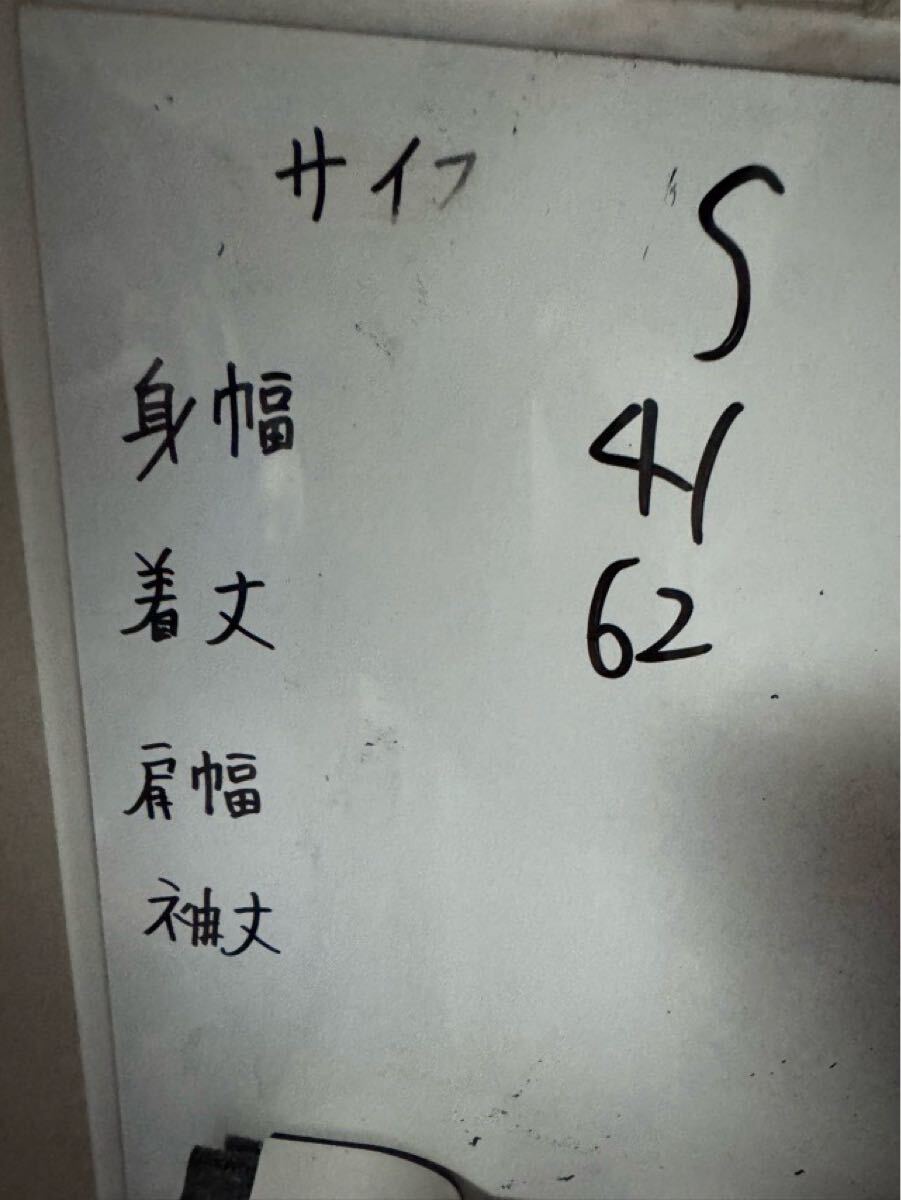 サイフ S
身幅 41
着丈 62
肩幅
袖丈